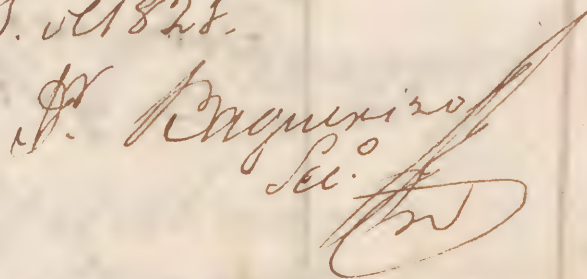 de 1828.
Baquerizo
Sec.o